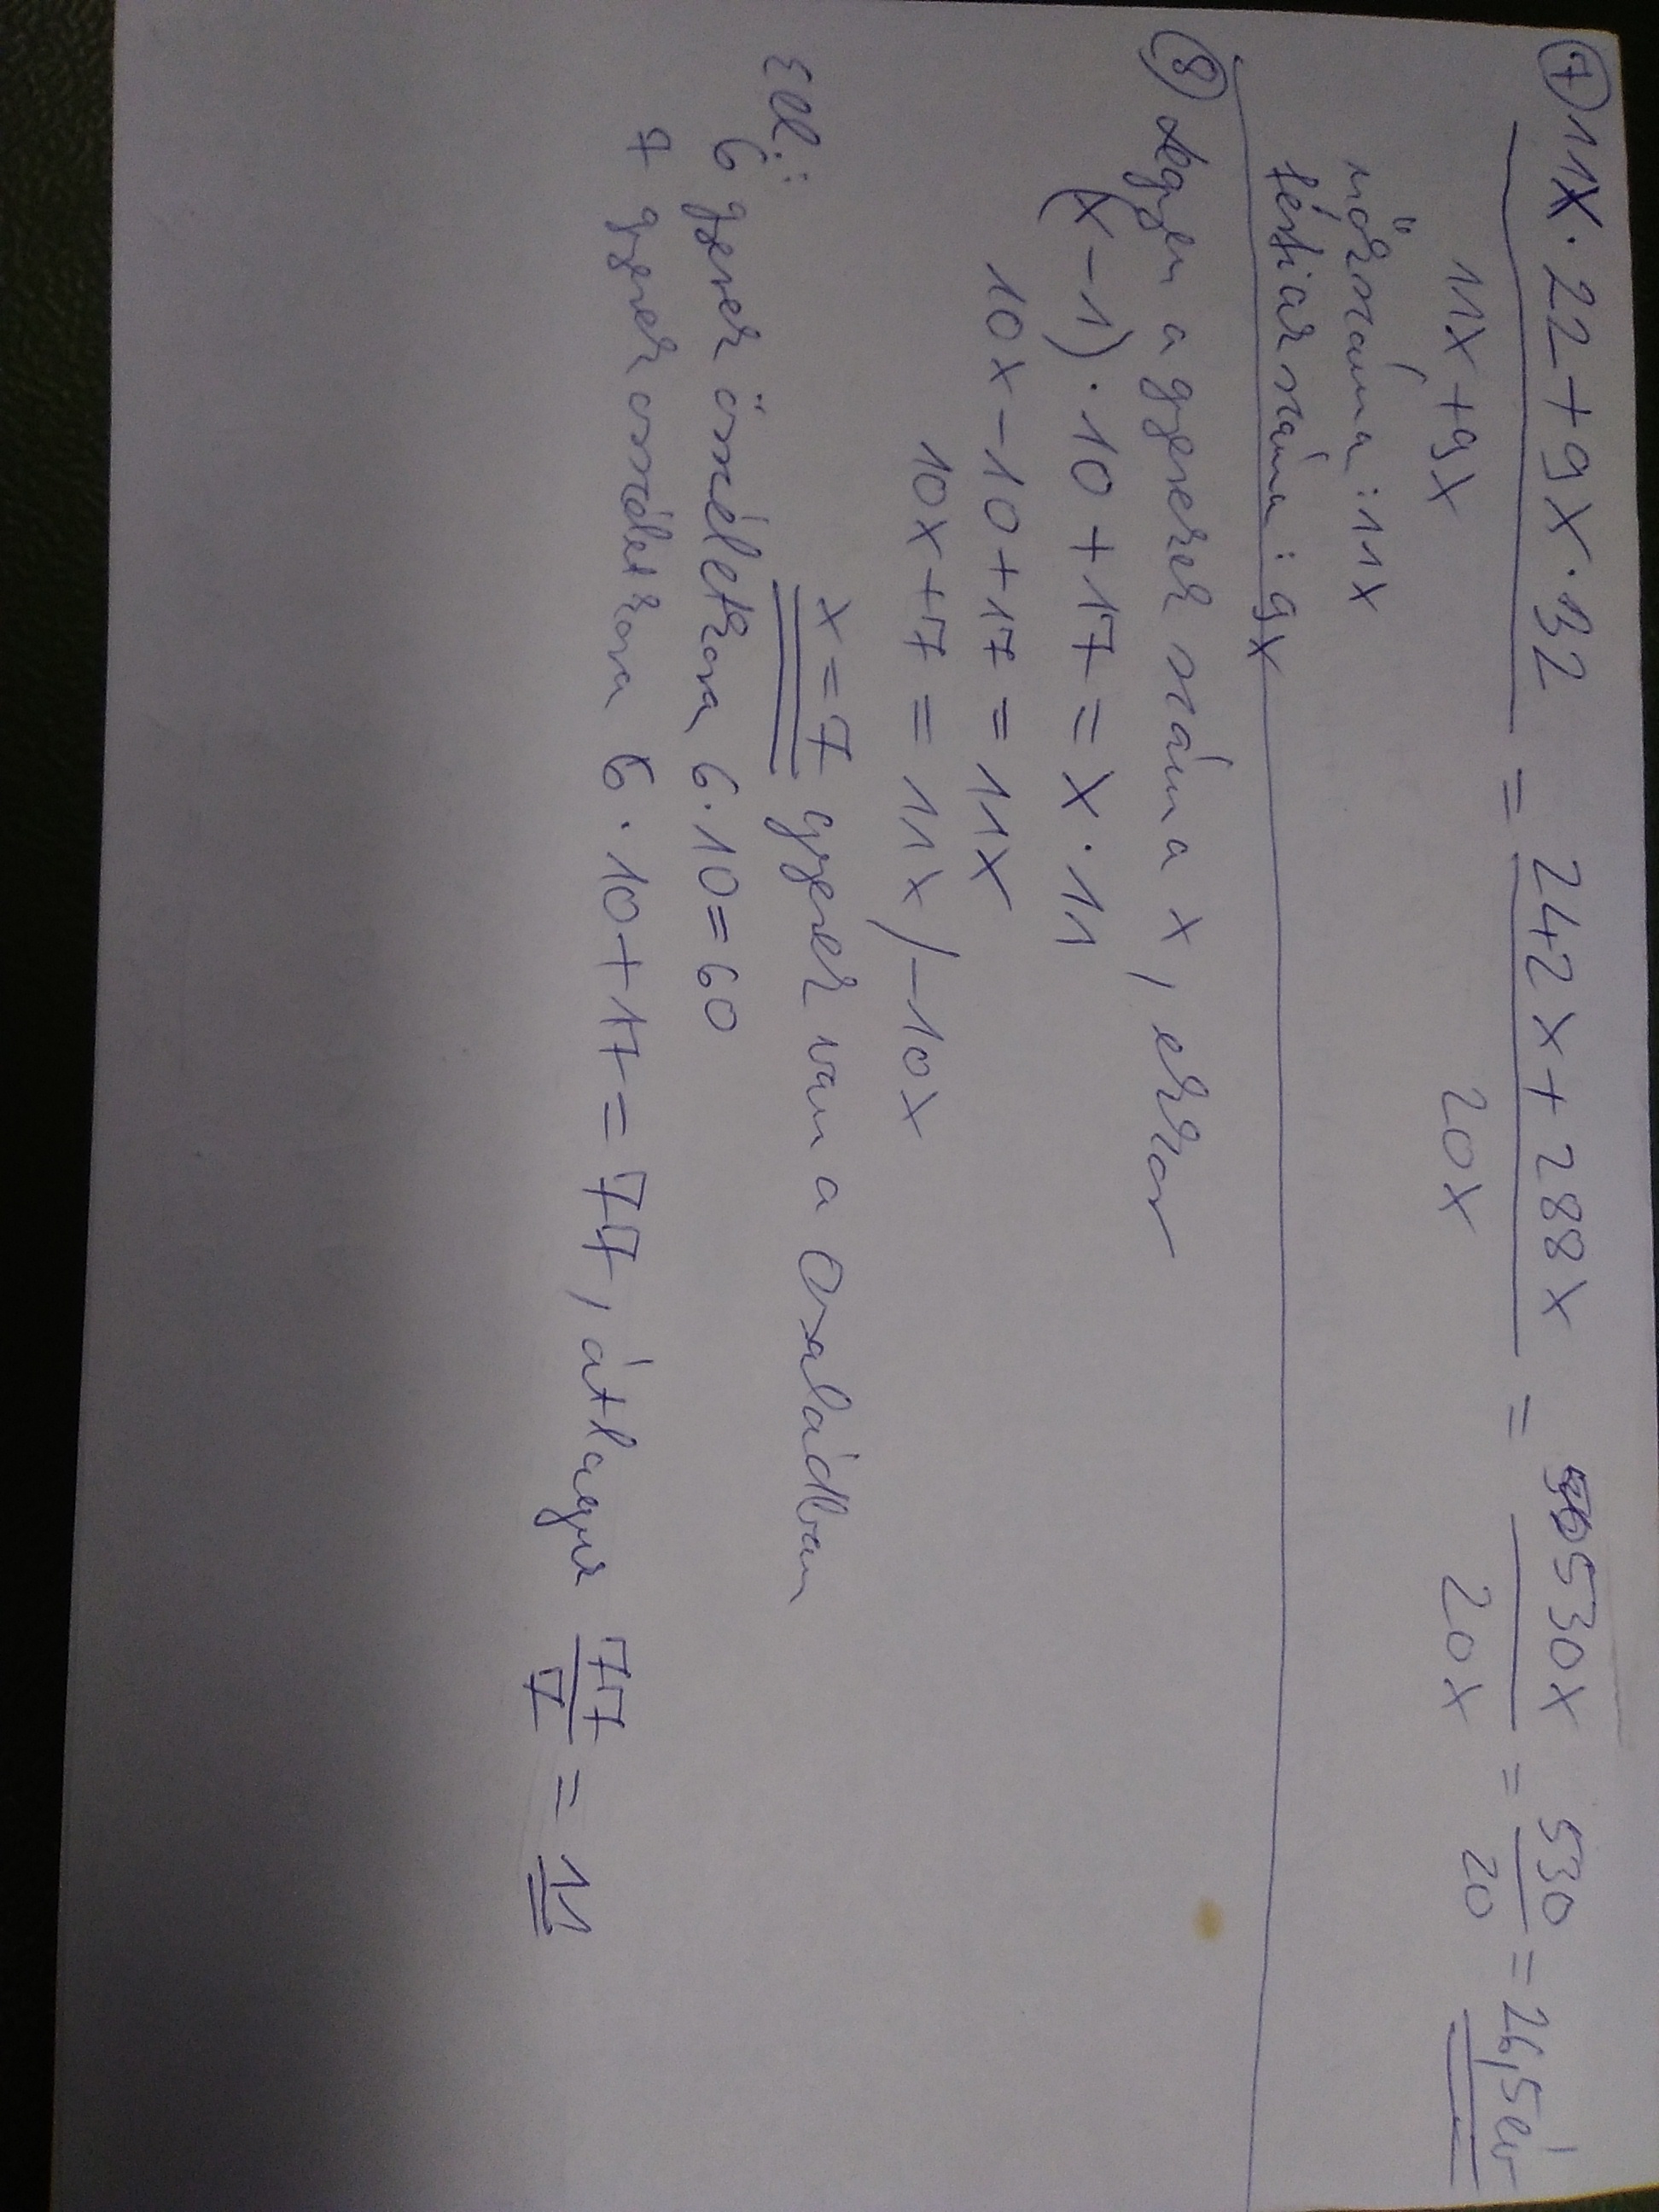 ⑦ 11x·22+9x·32 / 11x+9x = 242x+288x / 20x = 530x / 20x = 530 / 20 = 26,5 év
nők száma: 11x
férfiak száma: 9x
⑧ Legyen a gyerekek száma x, ekkor
(x-1)·10+17=x·11
10x-10+17=11x
10x+7=11x /-10x
x=7 gyerek van a családban
Ell.:
6 gyerek összéletkora 6·10=60
7 gyerek összéletkora 6·10+17=77, átlaguk 77/7=11